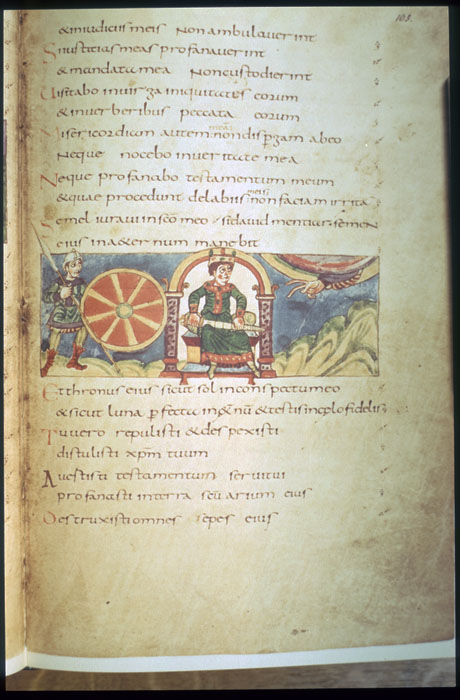 103.
&iniudiciis meis Non ambulaverint
Siiustitias meas profanaverint
&mandata mea Noncustodierint
Uisitabo inuirga iniquitates eorum
&inuerberibus peccata eorum
Misericordiam autem meā nondispergam abeo
Neque nocebo inueritate mea
Neque profanabo testamentum meum
&quae procedunt delabiis meis nonfaciam irrita
Semel iuraui insco meo sidauid mentiar semen
eius inaeternum manebit
Etthronus eius sicut sol inconspectumeo
&sicut luna perfecta &testis incelo fidelis
Tu uero repulisti &despexisti
distulisti xpm tuum
Auertisti testamentum serui tui
profanasti interra eius
Destruxisti omnes sepes eius